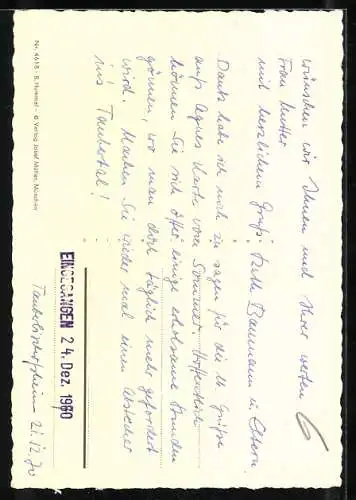 wünschen wir Ihnen und Ihrer werten
Frau Mutter
mit herzlichem Gruß Ruth Baumann u. Eltern.
Dank habe ich noch zu sagen für die lb Grüße
auf Agnes Karte vom Sommer. Hoffentlich
können Sie sich öfter einige erholsame Stunden
gönnen, wo man doch täglich mehr gefordert
wird. Machen Sie wieder mal einen Abstecher
ins Taubertal!
EINGEGANGEN 24. Dez. 1970
Tauberbischofsheim 21.12.70
Nr. 4618 - B. Hummel - © Verlag Josef Müller, München